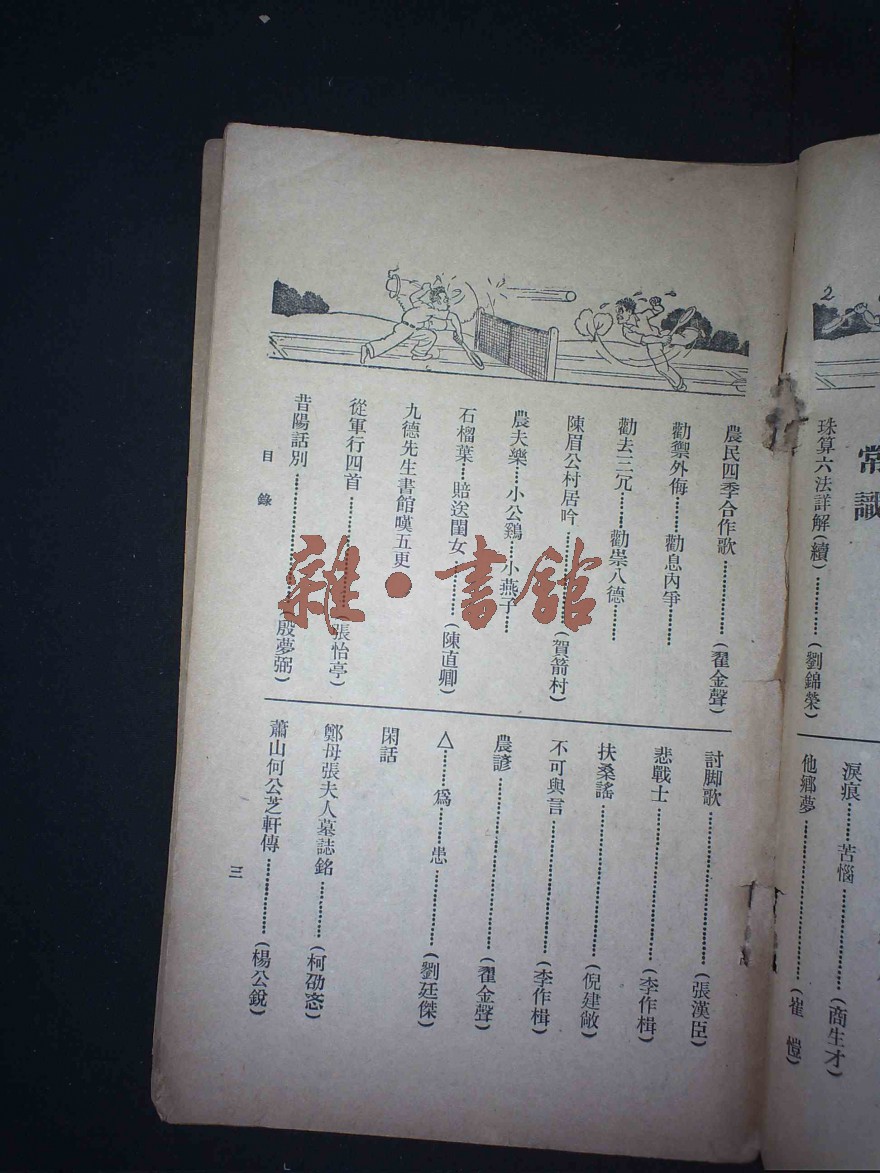 2
常識
珠算六法詳解(續)………(劉錦榮)
淚痕……苦惱………(商生才)
他鄉夢………(崔 愷)
農民四季合作歌………(翟金聲)
勸禦外侮……勸息內爭………
勸去三冗……勸崇八德………
陳眉公村居吟………(賀箭村)
農夫樂…小公鷄…小燕子…
石榴葉…賠送閨女………(陳直卿)
九德先生書館嘆五更
從軍行四首………(張怡亭)
昔陽話別………(殷夢弼)
討脚歌………(張漢臣)
悲戰士………(李作楫)
扶桑謠………(倪建敞)
不可與言………(李作楫)
農諺………(翟金聲)
△……爲……患………(劉廷傑)
閑話
鄭母張夫人墓誌銘………(柯劭忞)
蕭山何公芝軒傳………(楊公銳)
目錄
三
雜·書館